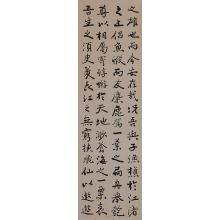 之雄也而今安在哉況吾與子漁樵於江渚
之上侶魚蝦而友麋鹿駕一葉之扁舟舉匏
尊以相屬寄蜉蝣於天地渺滄海之一粟哀
吾生之須臾羨長江之無窮挾飛仙以遨遊